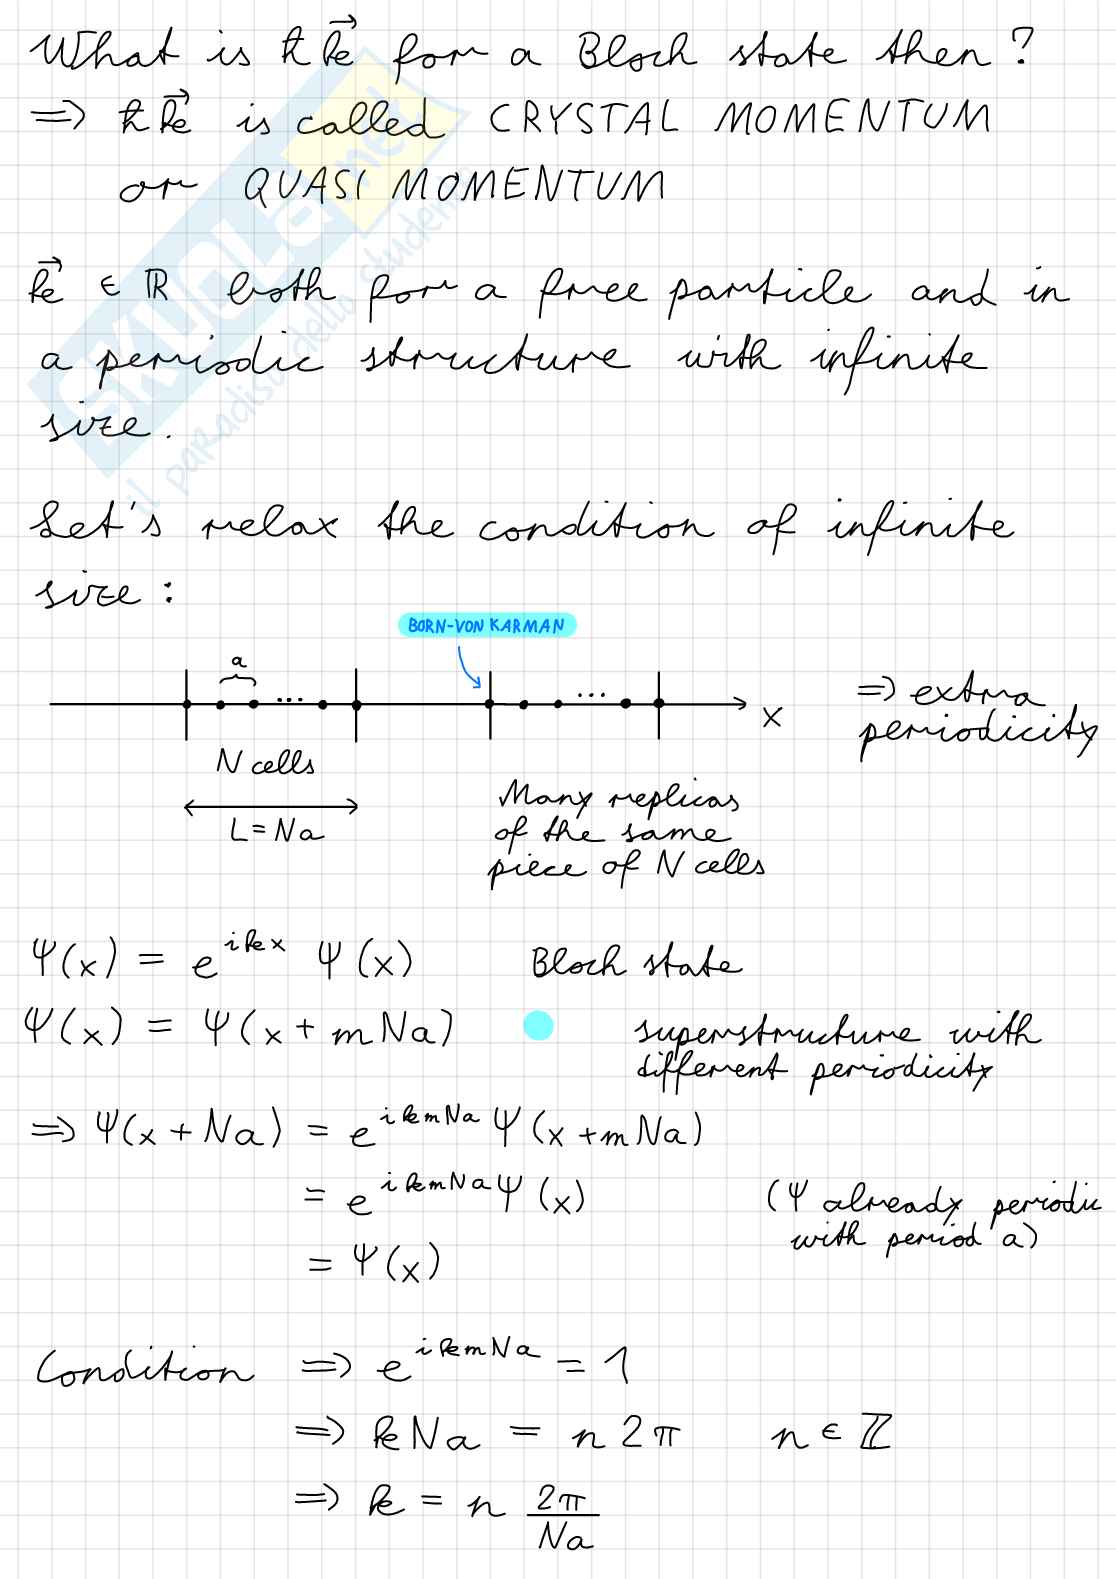 What is ħk⃗ for a Bloch state then?
⇒ ħk⃗ is called CRYSTAL MOMENTUM
or QUASI MOMENTUM
k⃗ ∈ ℝ both for a free particle and in
a periodic structure with infinite
size.
Let's relax the condition of infinite
size:
BORN-VON KARMAN
a
...
...
x
⇒ extra
periodicity
N cells
L = Na
Many replicas
of the same
piece of N cells
Ψ(x) = e^{ikx} Ψ(x) Bloch state
Ψ(x) = Ψ(x + mNa) superstructure with
different periodicity
⇒ Ψ(x + Na) = e^{ikmNa} Ψ(x+mNa)
= e^{ikmNa} Ψ(x) (Ψ already periodic
with period a)
= Ψ(x)
Condition ⇒ e^{ikmNa} = 1
⇒ kNa = n 2π n ∈ ℤ
⇒ k = n 2π/Na
SKUOLA.net
il paradiso dello studente